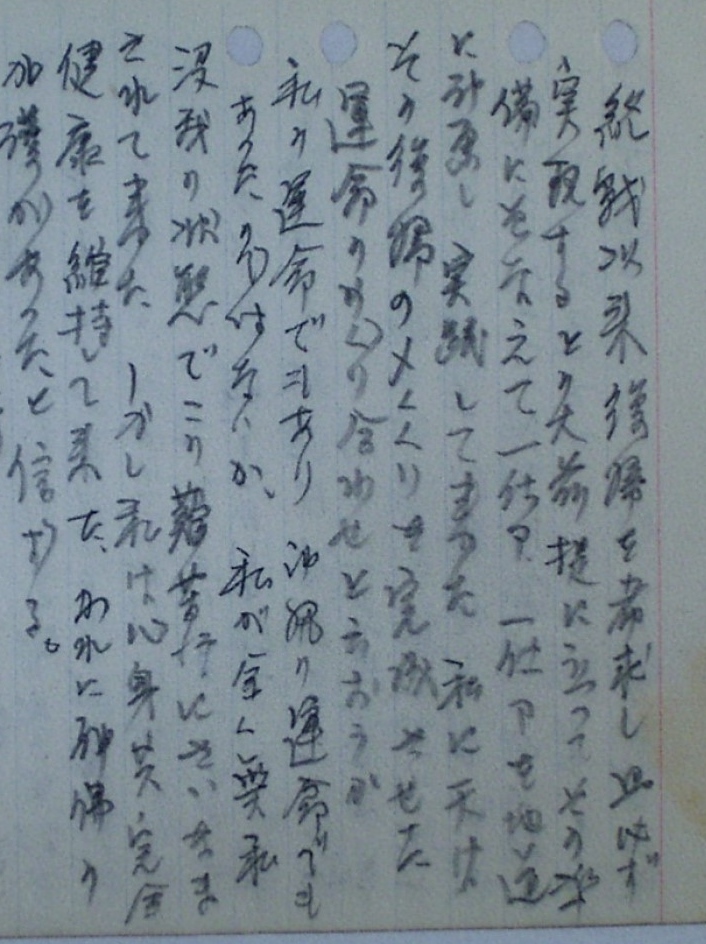 終戦以来復帰を希求し必ず
実現するとの大前提に立ってその準
備にそなえて一仕事一仕事を地道
に計画し実践して来った 私に天は
その復帰のメくくりを完成させた
運命のめぐり合わせと云おうが
私の運命でもあり沖縄の運命でも
あったのではないか、私が全く無私
没我の状態でこの難苦行にさいなま
されて来た しかし私は心身共完全
健康を維持して来た、われに神仏の
加護があったと信ずる。